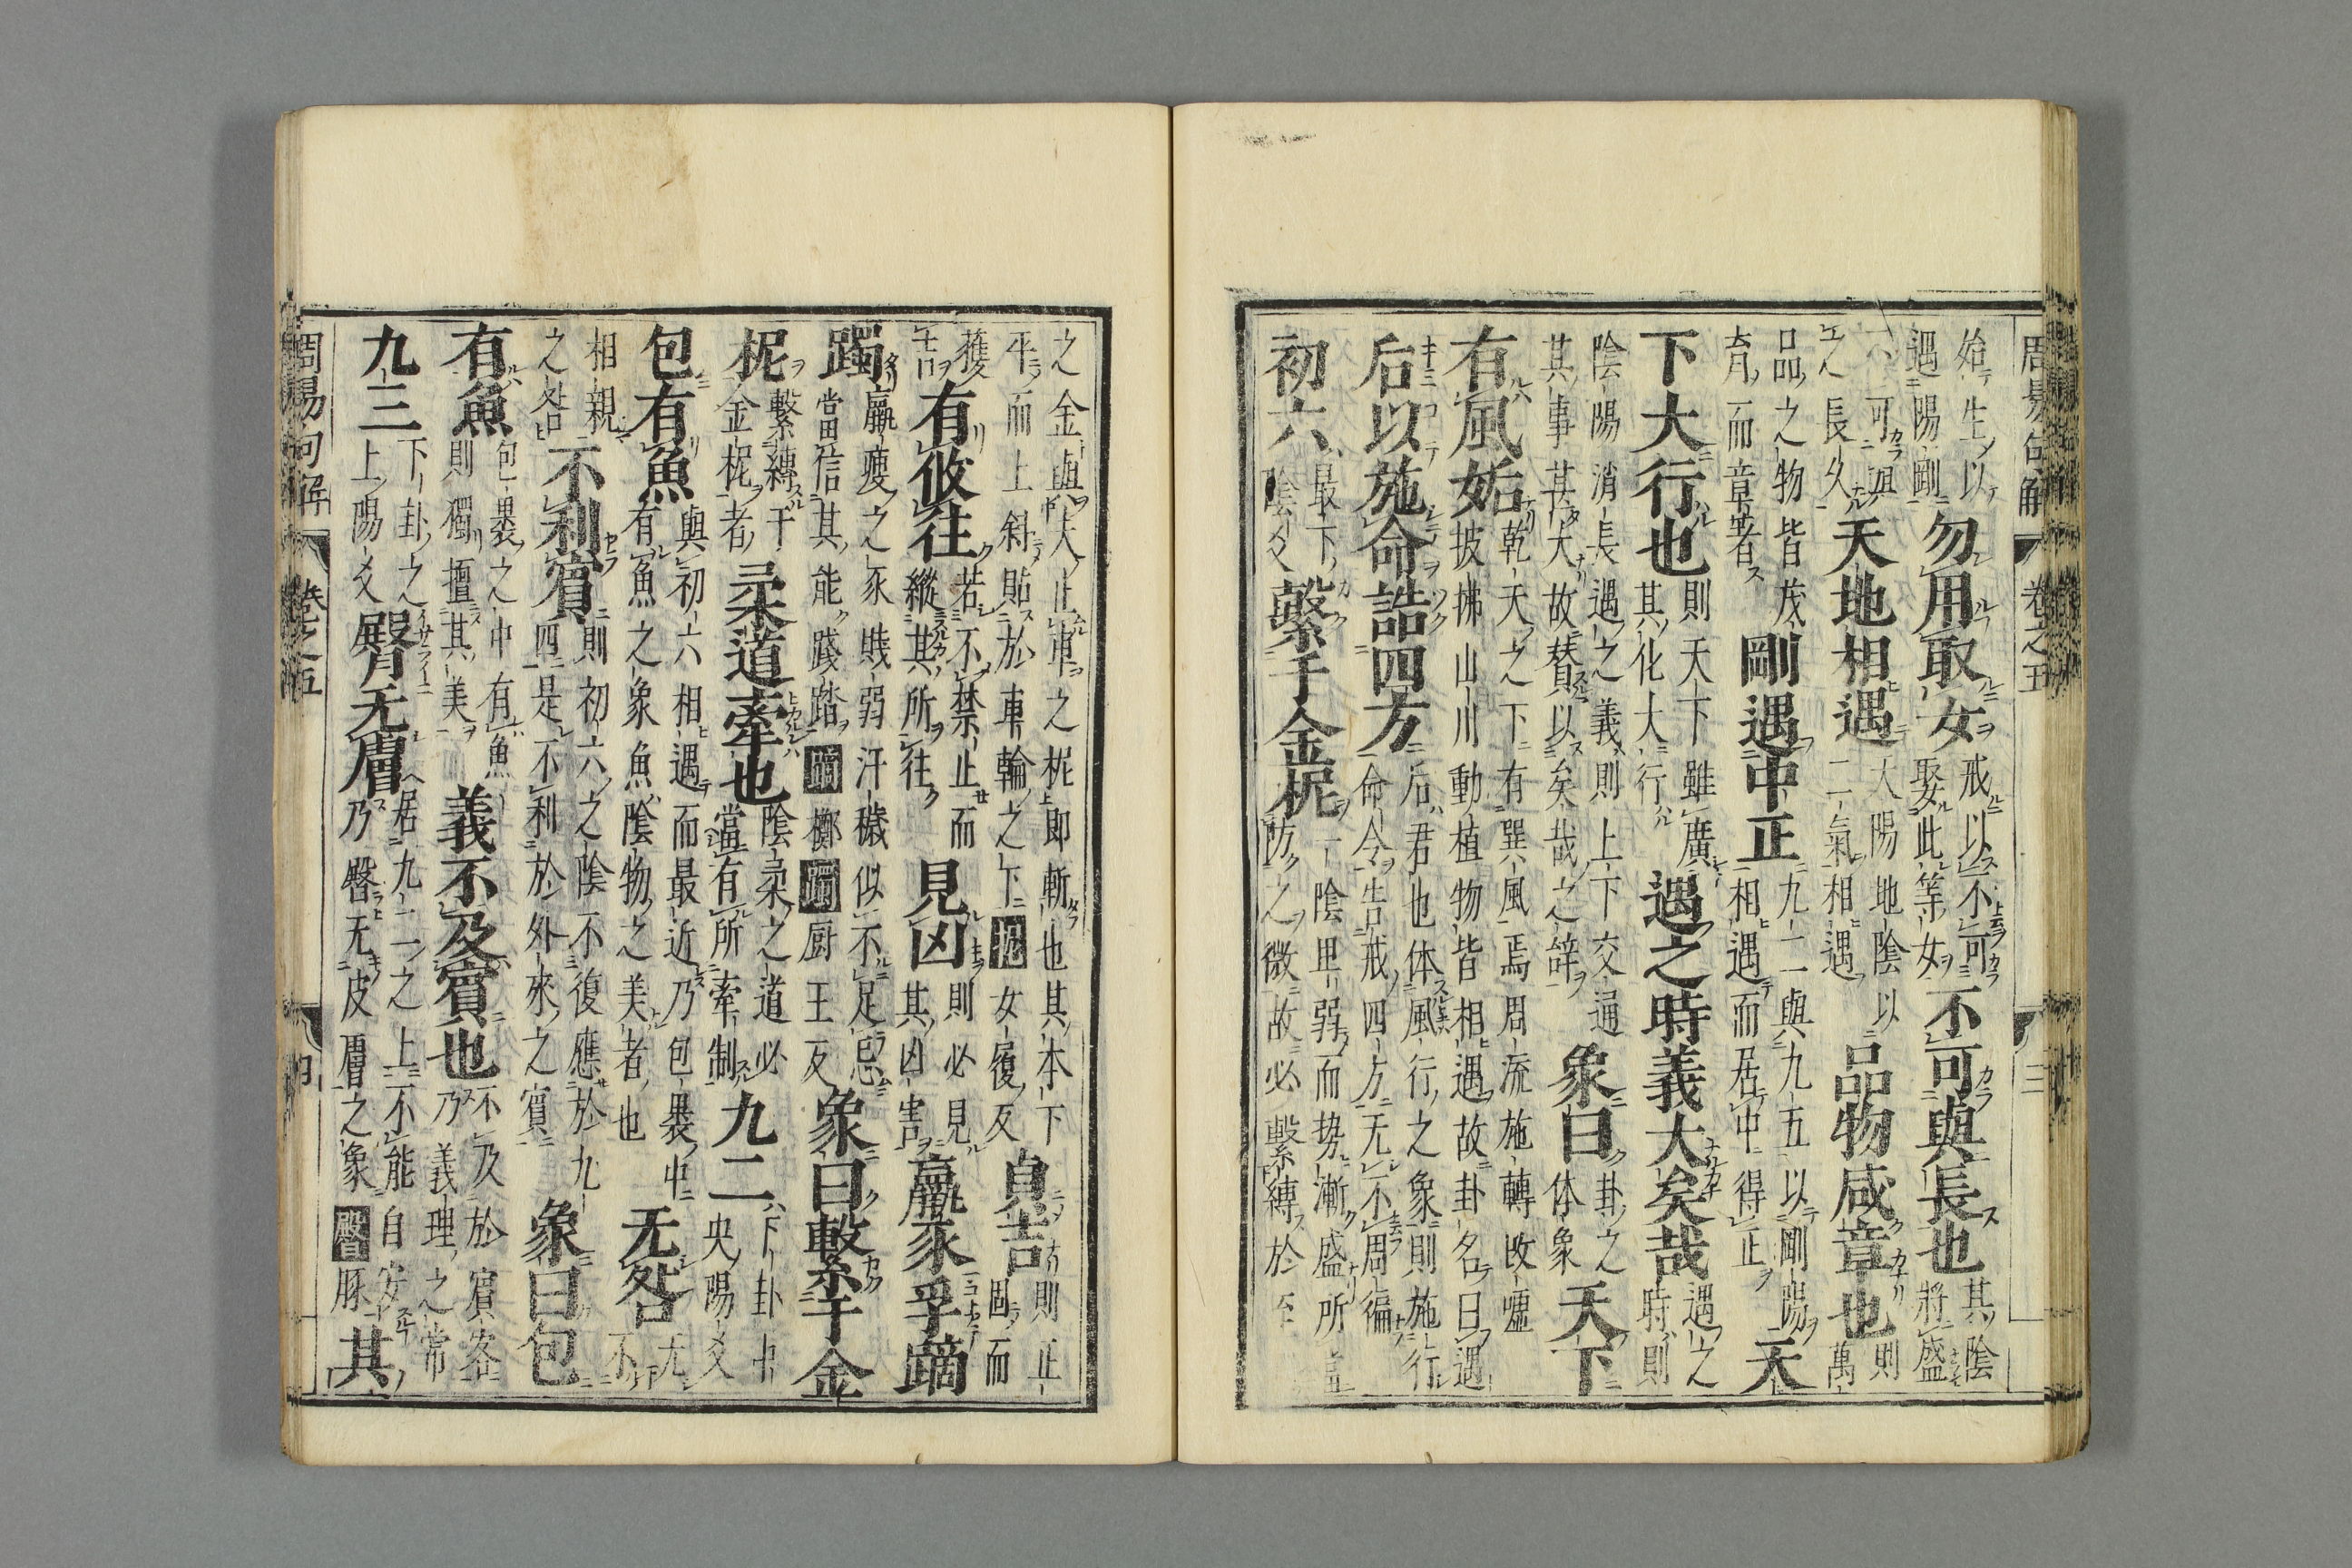 周易句解 卷之五 三
始生以遇陽剛勿用取女戒以不可娶此等女不可與長也其陰將盛
可與之長久天地相遇大陽地陰以二氣相遇品物咸章也則萬
品之物皆茂育而章著剛遇中正九二與九五以剛陽相遇而居中得正天
下大行也則天下雖廣其化大行遇之時義大矣哉遇之時則
陰陽消長遇之義則上下交通其事甚大故賛以矣哉之辞象曰卦之体象天下
有風姤乾天之下有巽風焉周流施轉吹嘘披拂山川動植物皆相遇故卦名曰遇
后以施命誥四方后君也体風行之象則施行命令告戒四方无不周徧
初六最下陰爻繫于金柅一陰里弱而势漸盛所防之微故必繫縛於至
之金與大止車之柅即斬也其本下平而上斜貼於車輪之下柅女履反貞吉則正固而
獲吉有攸往若不禁止而縱其所往見凶則必見其凶害羸豕孚蹢
躅羸瘦之豕賎弱汗穢似不足忌當信其能踐踏蹢擲躅厨王反象曰繫于金
柅繫縛于金柅者柔道牽也陰柔之道必當有所牽制九二下卦中央陽爻
包有魚與初六相遇而最近乃包裹中有魚之象魚陰物之美者也无咎尤不
相親之咎不利賓則初六之陰不復應於九四是不利於外來之賓象曰包
有魚包裹之中有魚則獨擅其美義不及賓也不及於賓客乃義理之常
九三下卦之上陽爻臀无膚居九二之上不能自安乃臀无皮膚之象臀豚其
周易句解 卷之五 四